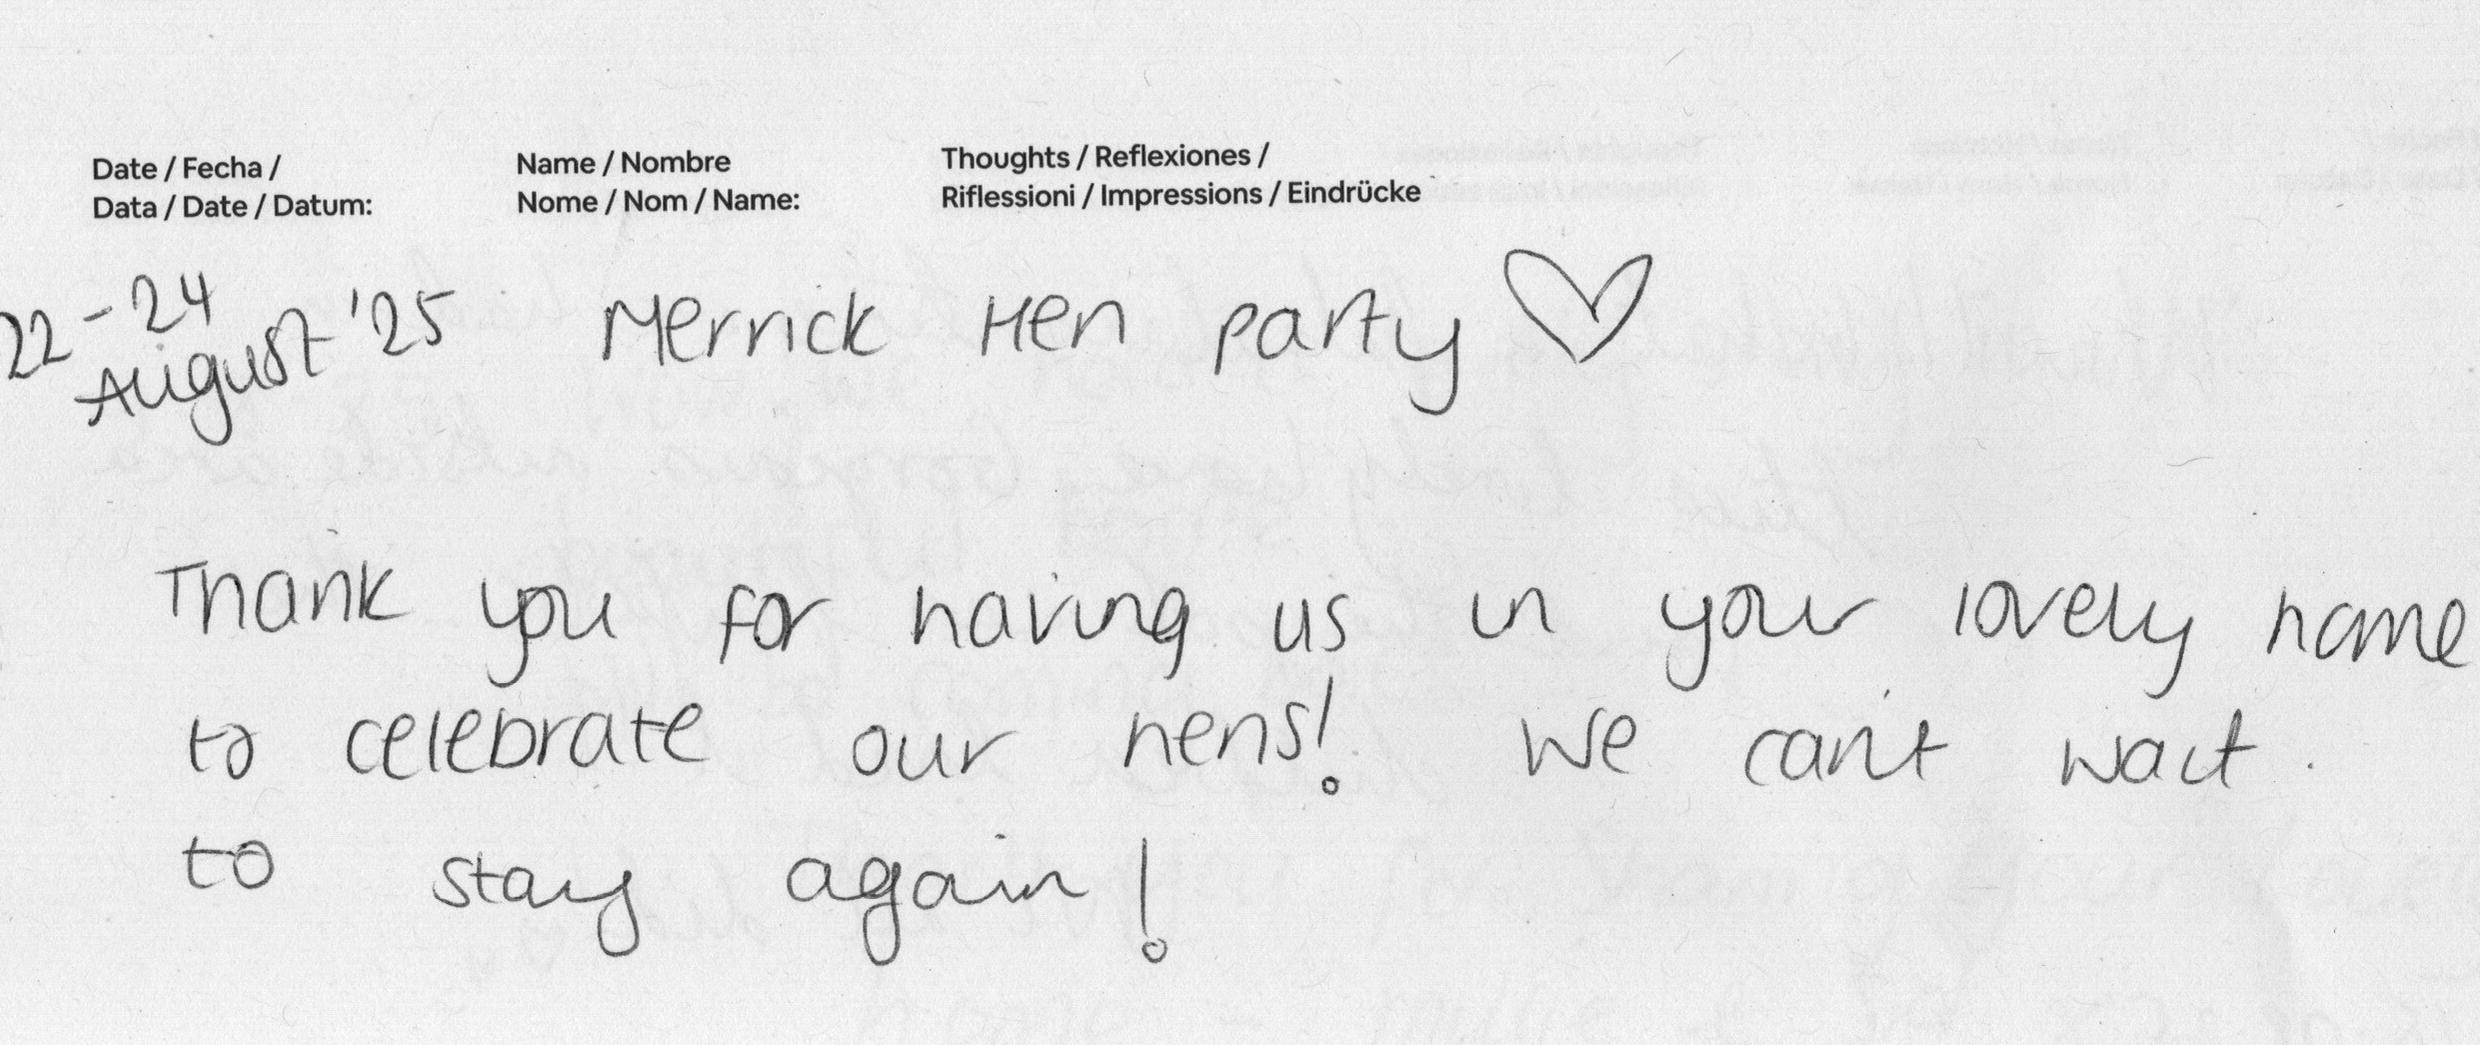 Date / Fecha /
Data / Date / Datum:
Name / Nombre
Nome / Nom / Name:
Thoughts / Reflexiones /
Riflessioni / Impressions / Eindrücke
22-24
August '25
Merrick Hen party ♡
Thank you for having us in your lovely home
to celebrate our hens! We can't wait
to stay again!